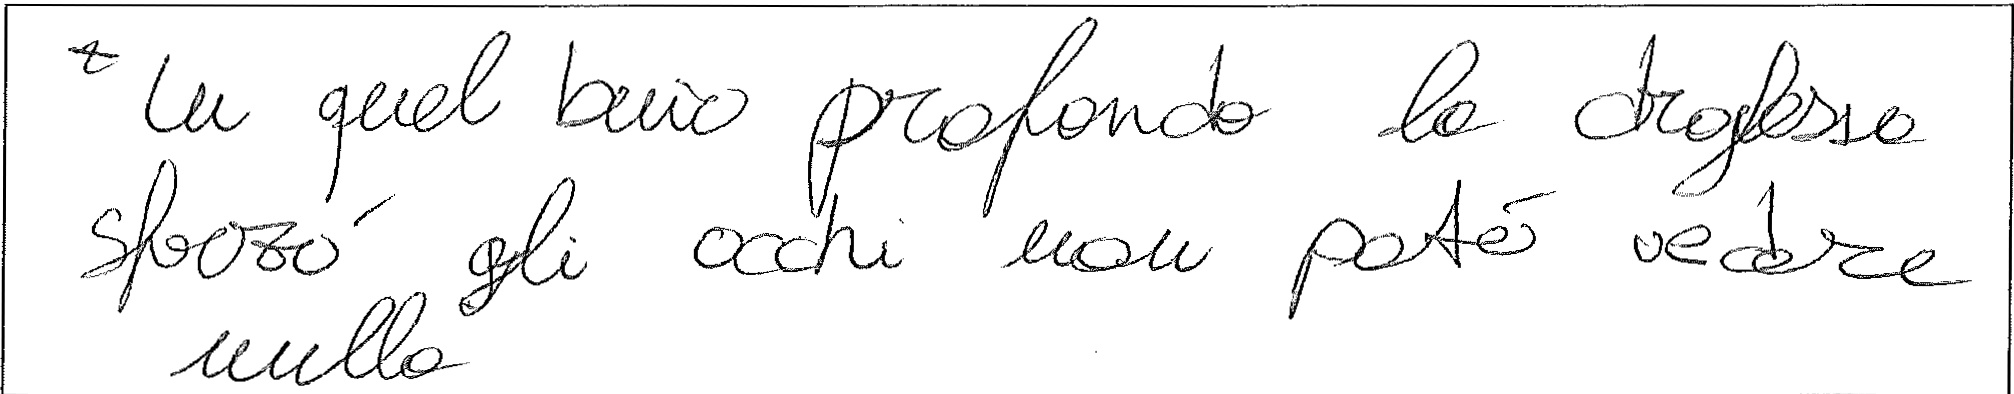 * In quel buio profondo la draghessa
sforzó gli occhi non poté vedere
nulla